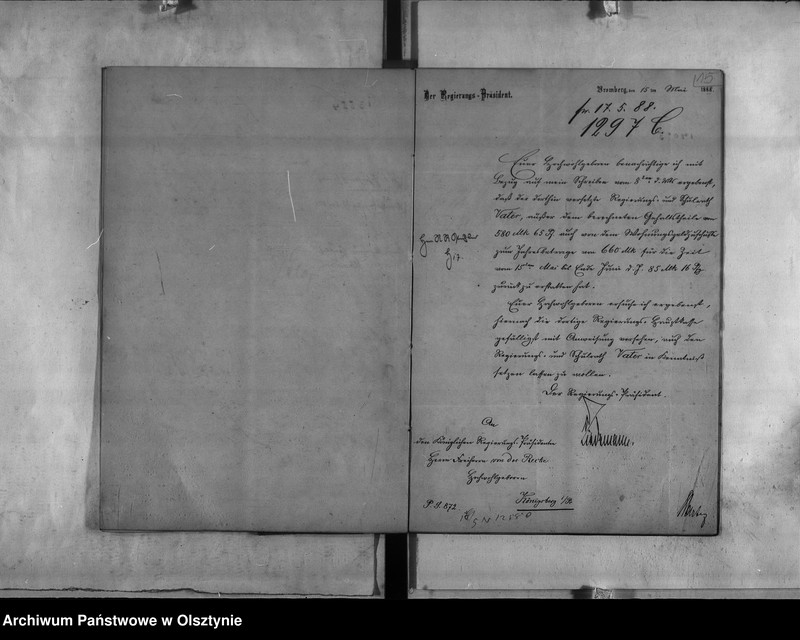 115
Der Regierungs-Präsident.
Bromberg, den 15ten Mai 1888.
pr. 17. 5. 88.
1297 C.
Euer Hochwohlgeboren benachrichtige ich mit
Bezug auf mein Schreiben vom 8ten d. Mts ergebenst,
daß der dorthin versetzte Regierungs- und Schulrath
Vater, außer dem berechneten Gehaltstheile von
580 Mk 65 Pf auch von dem Wohnungsgeldzuschusse
zum Jahresbetrage von 660 Mk für die Zeit
vom 15ten Mai bis Ende Juni d. J. 85 Mk 16 Pf
zurück zu erstatten hat.
Euer Hochwohlgeboren ersuche ich ergebenst,
hiernach die dortige Regierungs-Hauptkasse
gefälligst mit Anweisung versehen, auch den
Regierungs- und Schulrath Vater in Kenntniß
setzen lassen zu wollen.
Der Regierungs-Präsident.
Tiedemann.
An
den Königlichen Regierungs-Präsidenten
Herrn Freiherrn von der Recke
Hochwohlgeboren
Königsberg i/Pr
P. I. 872
Archiwum Państwowe w Olsztynie